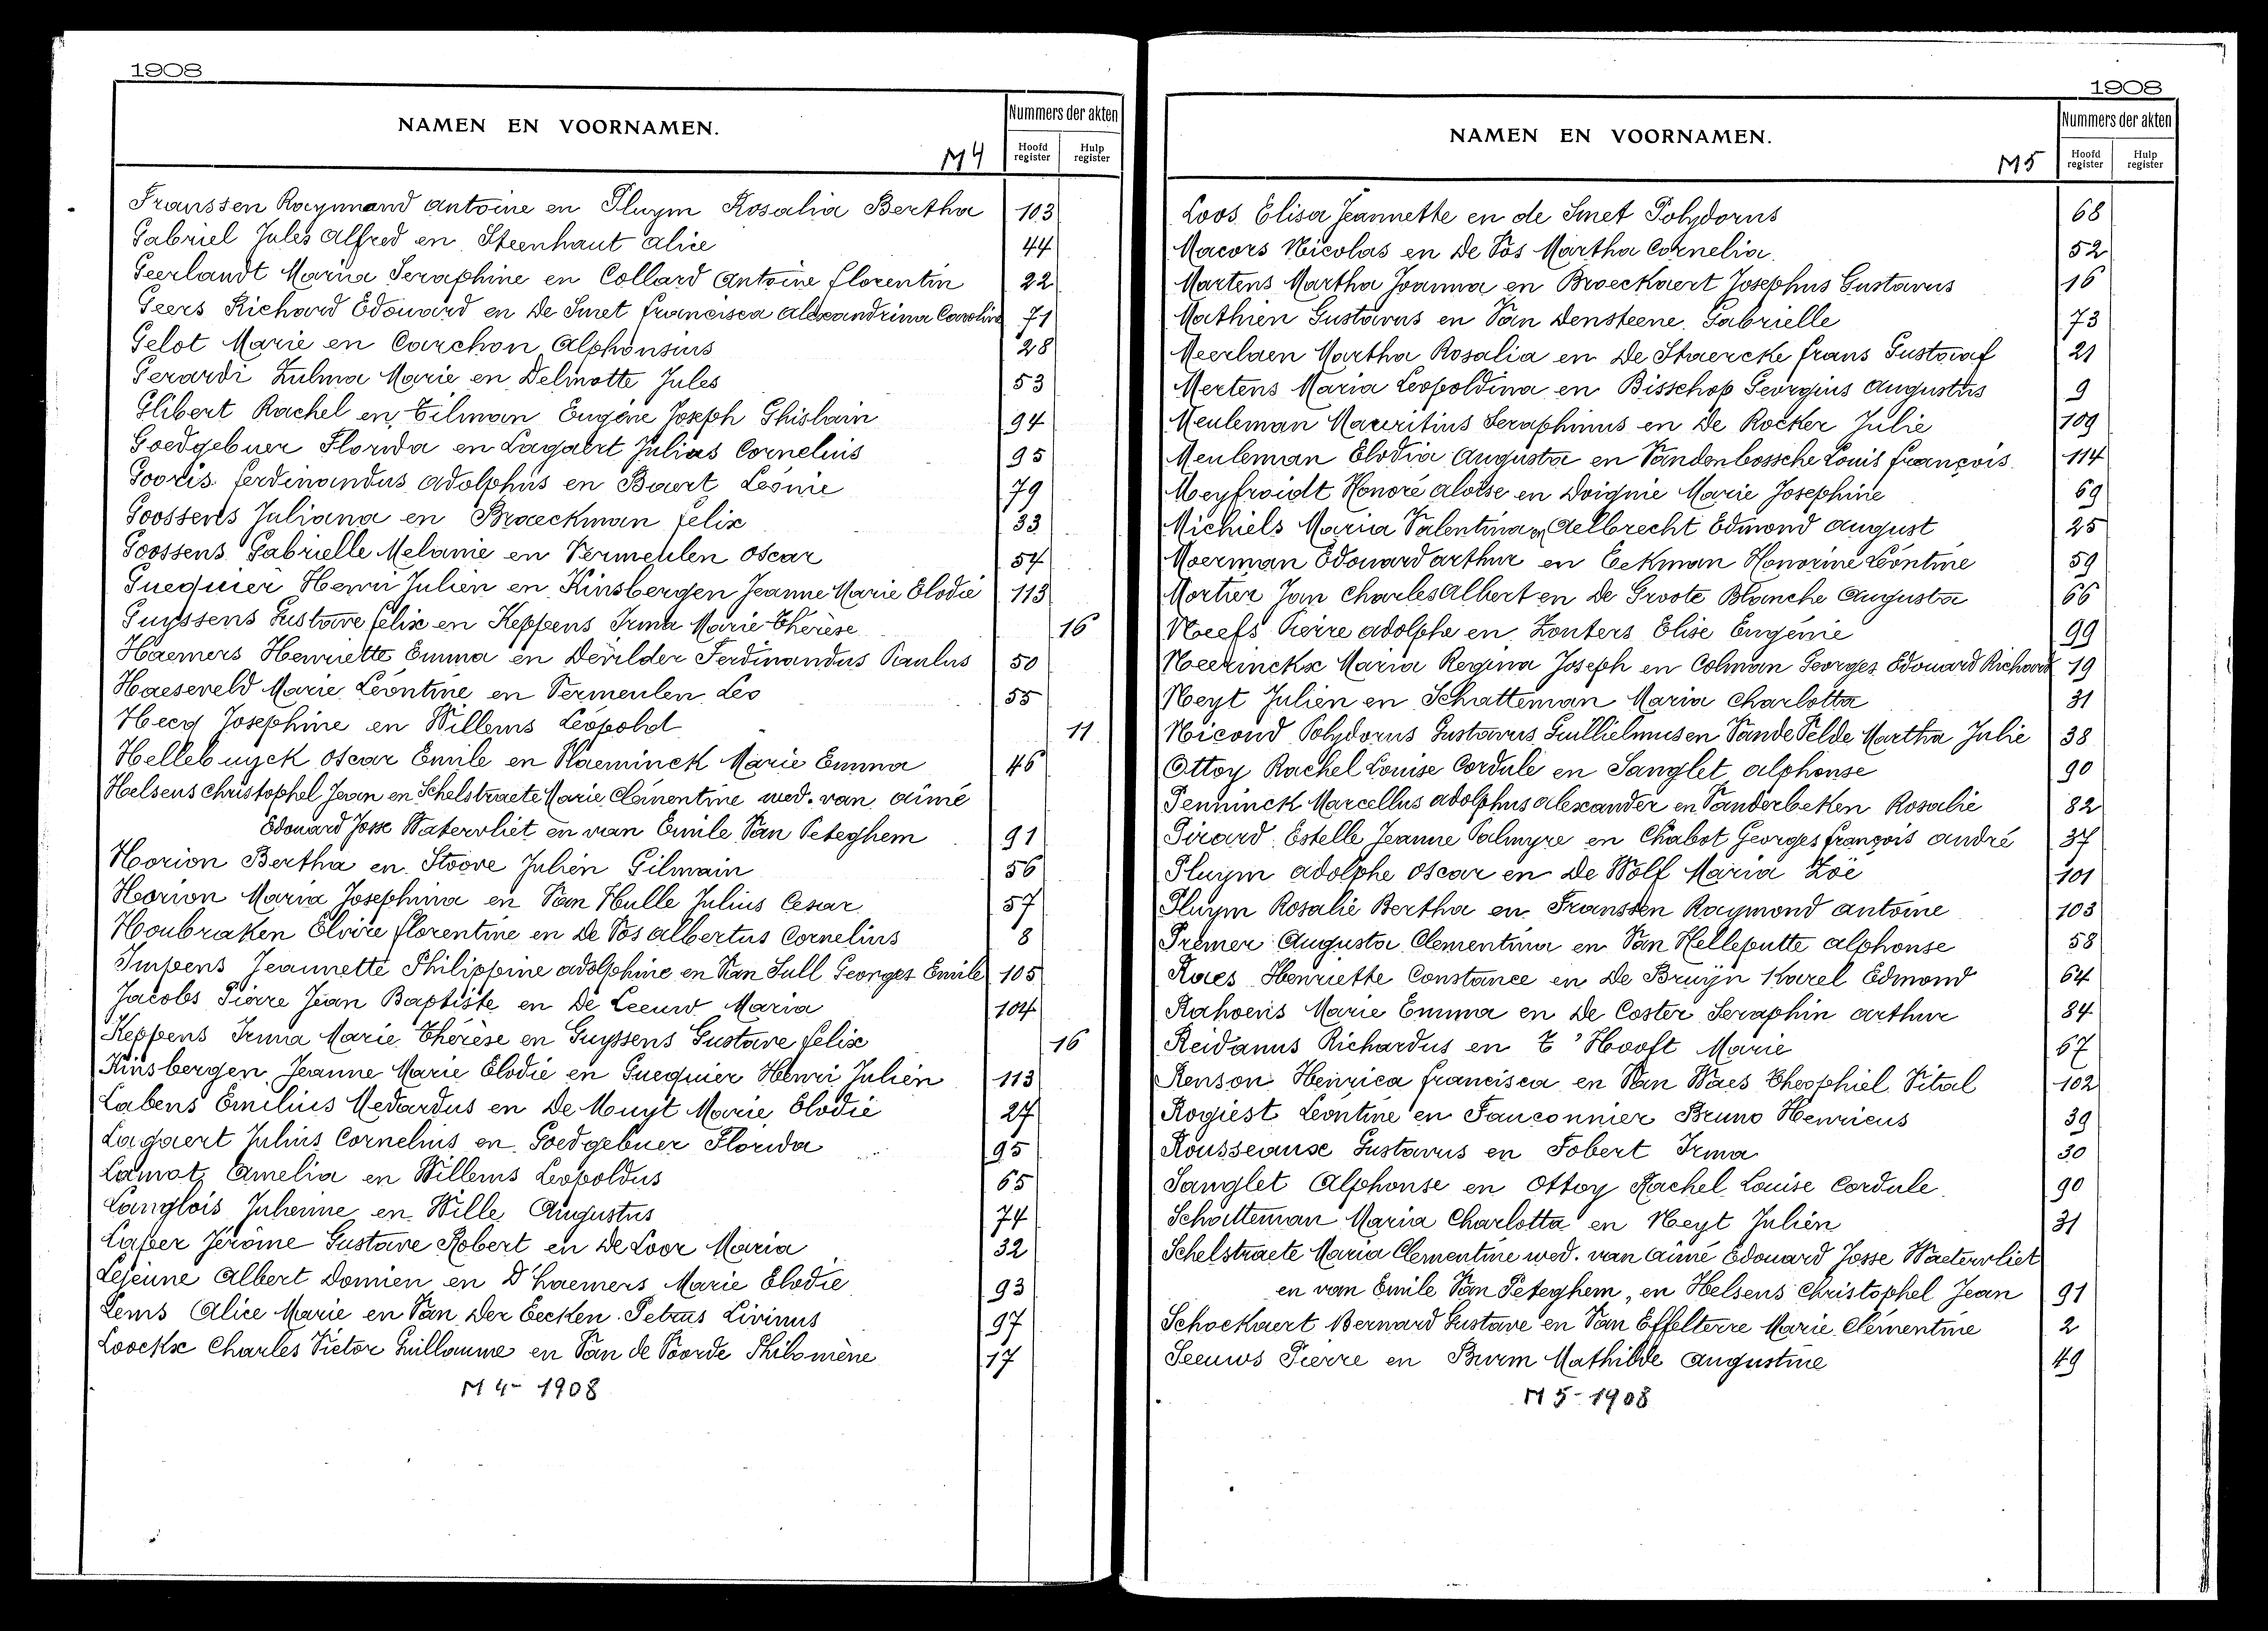 1908
NAMEN EN VOORNAMEN.
M4
Nummers der akten
Hoofd register
Hulp register
Franssen Raymnand Antoine en Pluym Rosalia Bertha 103
Gabriel Jules Alfred en Steenhaut Alice 44
Geerlandt Maria Seraphine en Collard Antoine Florentin 22
Geers Richard Edouard en De Smet Francisca Alexandrina Carolina 71
Gelot Marie en Carchon Alphonsius 28
Gerardi Zulma Marie en Delmotte Jules 53
Glibert Rachel en Tilman Eugène Joseph Ghislain 94
Goedgebuer Florida en Lagaert Julius Cornelius 95
Gooris Ferdinandus Adolphus en Baert Léonie 79
Goossens Juliana en Braeckman Felix 33
Goossens Gabrielle Melanie en Vermeulen Oscar 54
Guequier Henri Julien en Kinsbergen Jeanne Marie Elodie 113
Guyssens Gustave Felix en Keppens Irma Marie Thérèse 16
Haemers Henriette Emma en Dewilder Ferdinandus Paulus 50
Haeseveld Marie Léontine en Vermeulen Leo 55
Hecq Josephine en Willems Léopold 11
Hellebuyck Oscar Emile en Vlaeminck Marie Emma 46
Helsens Christophel Jean en Schelstraete Marie Clémentine wed. van Aimé
Edouard Josse Watervliet en van Emile Van Peteghem 91
Horion Bertha en Stoove Julien Gilmain 56
Horion Maria Josephina en Van Hulle Julius Cesar 57
Houbraken Elvire Florentine en De Vos Albertus Cornelius 8
Impens Jeannette Philippine Adolphine en Van Sull Georges Emile 105
Jacobs Pierre Jean Baptiste en De Leeuw Maria 104
Keppens Irma Marie Thérèse en Guyssens Gustave Felix 16
Kinsbergen Jeanne Marie Elodie en Guequier Henri Julien 113
Labens Emilius Medardus en De Muyt Marie Elodie 24
Lagaert Julius Cornelius en Goedgebuer Florida 95
Lamot Amelia en Willems Leopoldus 65
Langlois Julienne en Wille Augustus 74
Laper Jérôme Gustave Robert en De Loor Maria 32
Lejeune Albert Domien en D'haemers Marie Elodie 93
Lems Alice Marie en Van Der Eecken Petrus Livinus 97
Loockx Charles Victor Guillaume en Van de Voorde Philomène 17
M 4 - 1908
1908
NAMEN EN VOORNAMEN.
M5
Nummers der akten
Hoofd register
Hulp register
Loos Elisa Jeannette en de Smet Polydorus 68
Macors Nicolas en De Vos Martha Cornelia 52
Martens Martha Joanna en Broeckaert Josephus Gustavus 16
Mathien Gustavus en Van Densteene Gabrielle 73
Meerlaen Martha Rosalia en De Staercke Frans Gustaaf 21
Mertens Maria Leopoldina en Bisschop Georgius Augustus 9
Meuleman Mauritius Seraphinus en De Rocker Julie 109
Meuleman Elodia Augusta en Vandenbossche Louis François 114
Meyfroidt Honoré Aloïse en Doignie Marie Josephine 69
Michiels Maria Valentina en Aelbrecht Edmond August 25
Moerman Edouard Arthur en Eeckman Honorine Léontine 59
Mortier Jan Charles Albert en De Groote Blanche Augusta 66
Neefs Pierre Adolphe en Zonters Elise Eugénie 99
Neerinckx Maria Regina Joseph en Colman Georges Edouard Richard 19
Neyt Julien en Schatteman Maria Charlotta 31
Nicoud Polydorus Gustavus Guillielmus en Vande Velde Martha Julie 38
Ottoy Rachel Louise Cordule en Sanglet Alphonse 90
Penninck Marcellus Adolphus Alexander en Vanderbeken Rosalie 82
Pirard Estelle Jeanne Palmyre en Chabot Georges François André 37
Pluym Adolphe Oscar en De Wolf Maria Zoë 101
Pluym Rosalie Bertha en Franssen Raymond Antoine 103
Premer Augusta Clementina en Van Helleputte Alphonse 58
Raes Henriette Constance en De Bruijn Karel Edmond 64
Rahoens Marie Emma en De Coster Seraphin Arthur 84
Reidanus Richardus en T'Hooft Marie 67
Renson Heinrica Francisca en Van Waes Theophiel Vital 102
Rogiest Léontine en Fauconnier Bruno Henricus 39
Rousseaux Gustavus en Jobert Irma 30
Sanglet Alphonse en Ottoy Rachel Louise Cordule 90
Schatteman Maria Charlotta en Neyt Julien 31
Schelstraete Maria Clementine wed. van Aimé Edouard Josse Waetervliet
en van Emile Van Peteghem, en Helsens Christophel Jean 91
Schockaert Bernard Gustave en Van Effelterre Marie Clémentine 2
Seeuws Pierre en Burm Mathilde Augustine 49
M 5 - 1908